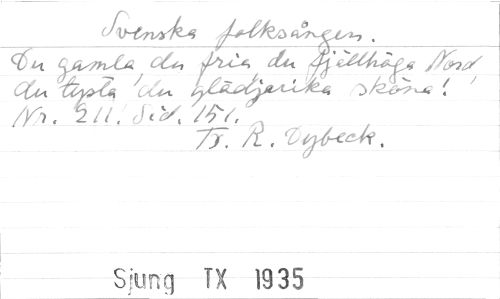 Svenska folksången.
Du gamla, du fria, du fjällhöga Nord,
du tysta, du glädjerika sköna!
Nr. 211. Sid. 151.
Tr. R. Dybeck.
Sjung TX 1935